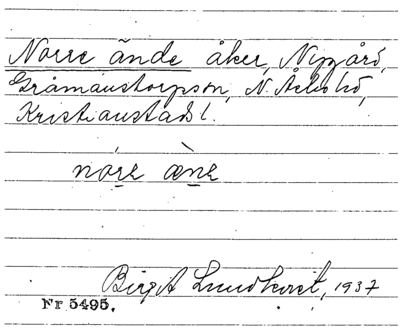 Norre ände åker, Nygård,
Gråmanstorpssn, N. Åsbohd,
Kristianstads l.
nóre æ̀ne
Birgit Lundkvist, 1937
Nr 5495.